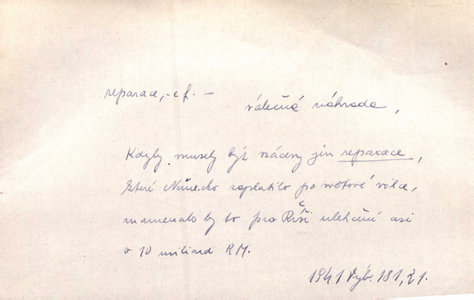 reparace, -e f. –
válečná náhrada,
Kdyby musely být vráceny jen reparace,
které Německo zaplatilo po světové válce,
znamenalo by to pro Říši ulehčení asi
o 10 miliard RM.
1941 Výb. 181, 21.